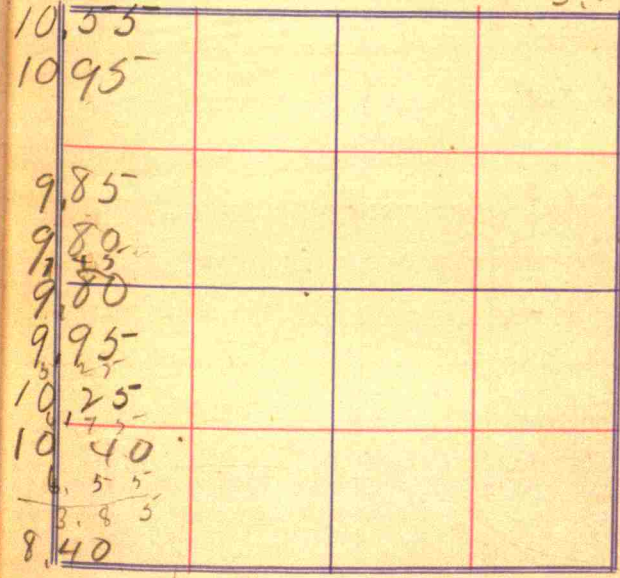 10,55
10 95
9,85
9 80
9,80
9,95
10,25
10 40
6,55
3,85
8,40